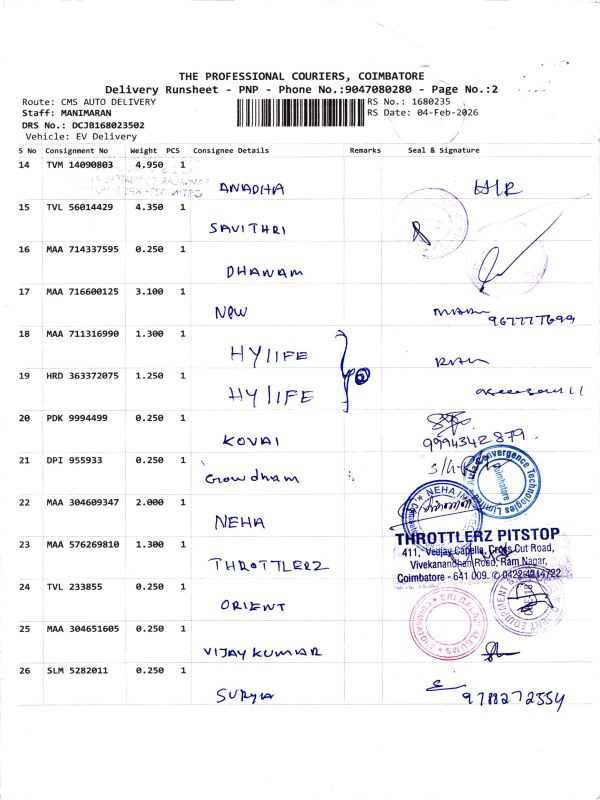 THE PROFESSIONAL COURIERS, COIMBATORE
Delivery Runsheet - PNP - Phone No.:9047080280 - Page No.:2
Route: CMS AUTO DELIVERY
RS No.: 1680235
Staff: MANIMARAN
RS Date: 04-Feb-2026
DRS No.: DCJB168023502
Vehicle: EV Delivery
S No Consignment No Weight PCS Consignee Details Remarks Seal & Signature
14 TVM 14090803 4.950 1
ANADHA
15 TVL 56014429 4.350 1
SAVITHRI
16 MAA 714337595 0.250 1
DHANAM
17 MAA 716600125 3.100 1
New
18 MAA 711316990 1.300 1
HYLIFE
19 HRD 363372075 1.250 1
HYLIFE
20 PDK 9994499 0.250 1
KOVAI
9994342879
21 DPI 955933 0.250 1
Gowdham
Convergence Technologies Limited
Coimbatore
22 MAA 304609347 2.000 1
NEHA
NEHA
23 MAA 576269810 1.300 1
THROTTLERZ
THROTTLERZ PITSTOP
411, Veejay Capella, Cross Cut Road,
Vivekanandhan Road, Ram Nagar,
Coimbatore - 641 009.
24 TVL 233855 0.250 1
ORIENT
25 MAA 304651605 0.250 1
VIJAY KUMAR
26 SLM 5282011 0.250 1
SURYA
9788272554